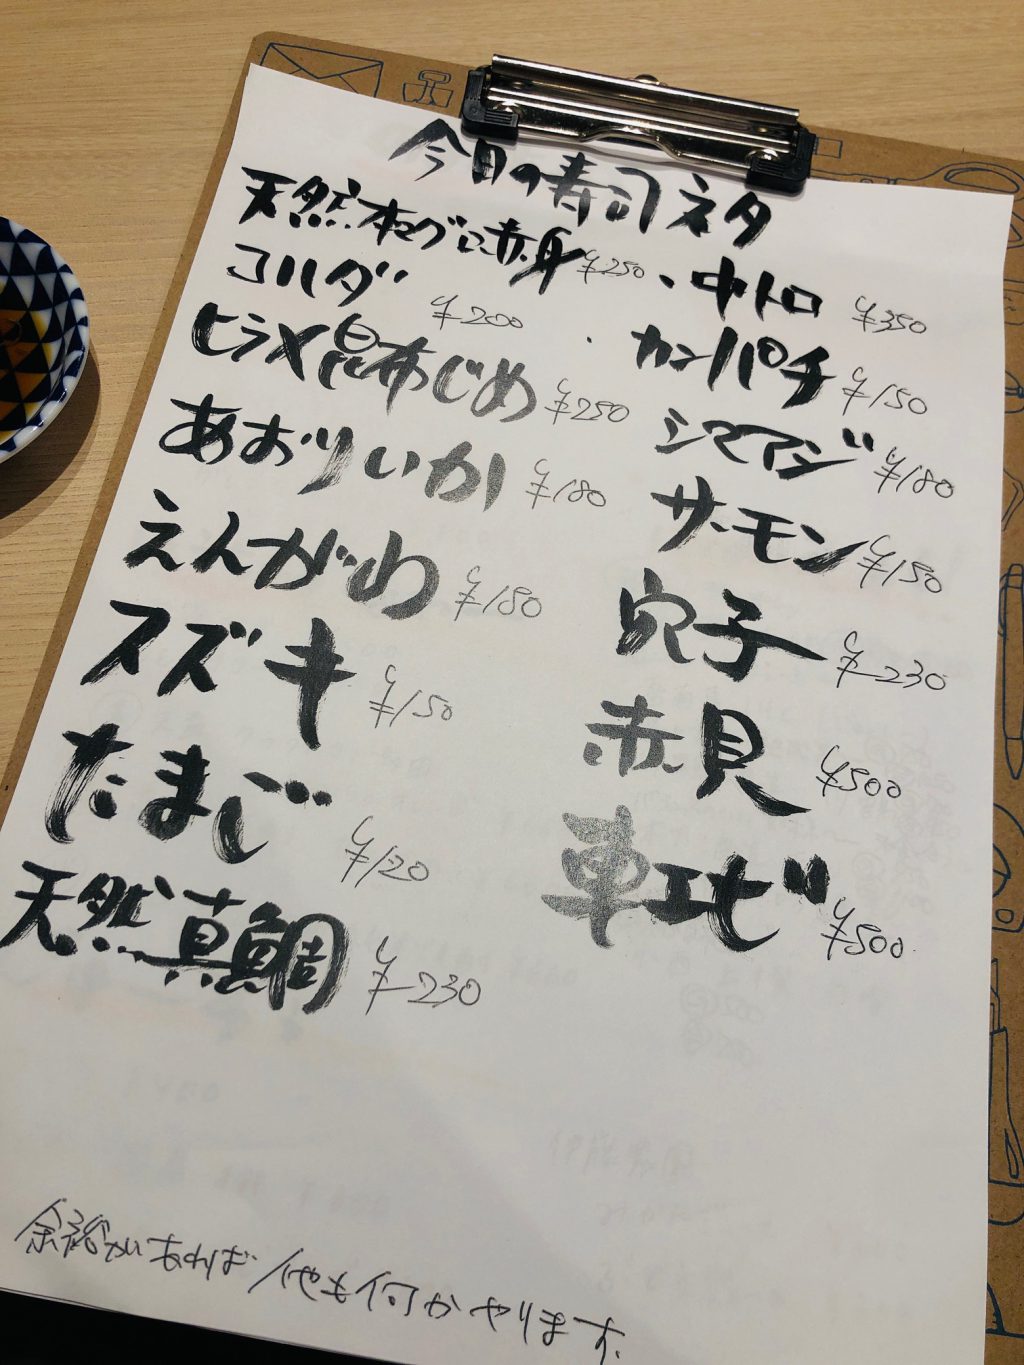 今日の寿司ネタ
天然本マグロ赤身 ¥250、中トロ ¥350
コハダ ¥200
ヒラメ昆布じめ ¥250
あおりいか ¥180
えんがわ ¥180
スズキ ¥150
たまご ¥120
天然真鯛 ¥230
カンパチ ¥150
シマアジ ¥180
サーモン ¥150
穴子 ¥230
赤貝 ¥500
車エビ ¥500
余裕があれば他も何かやります。